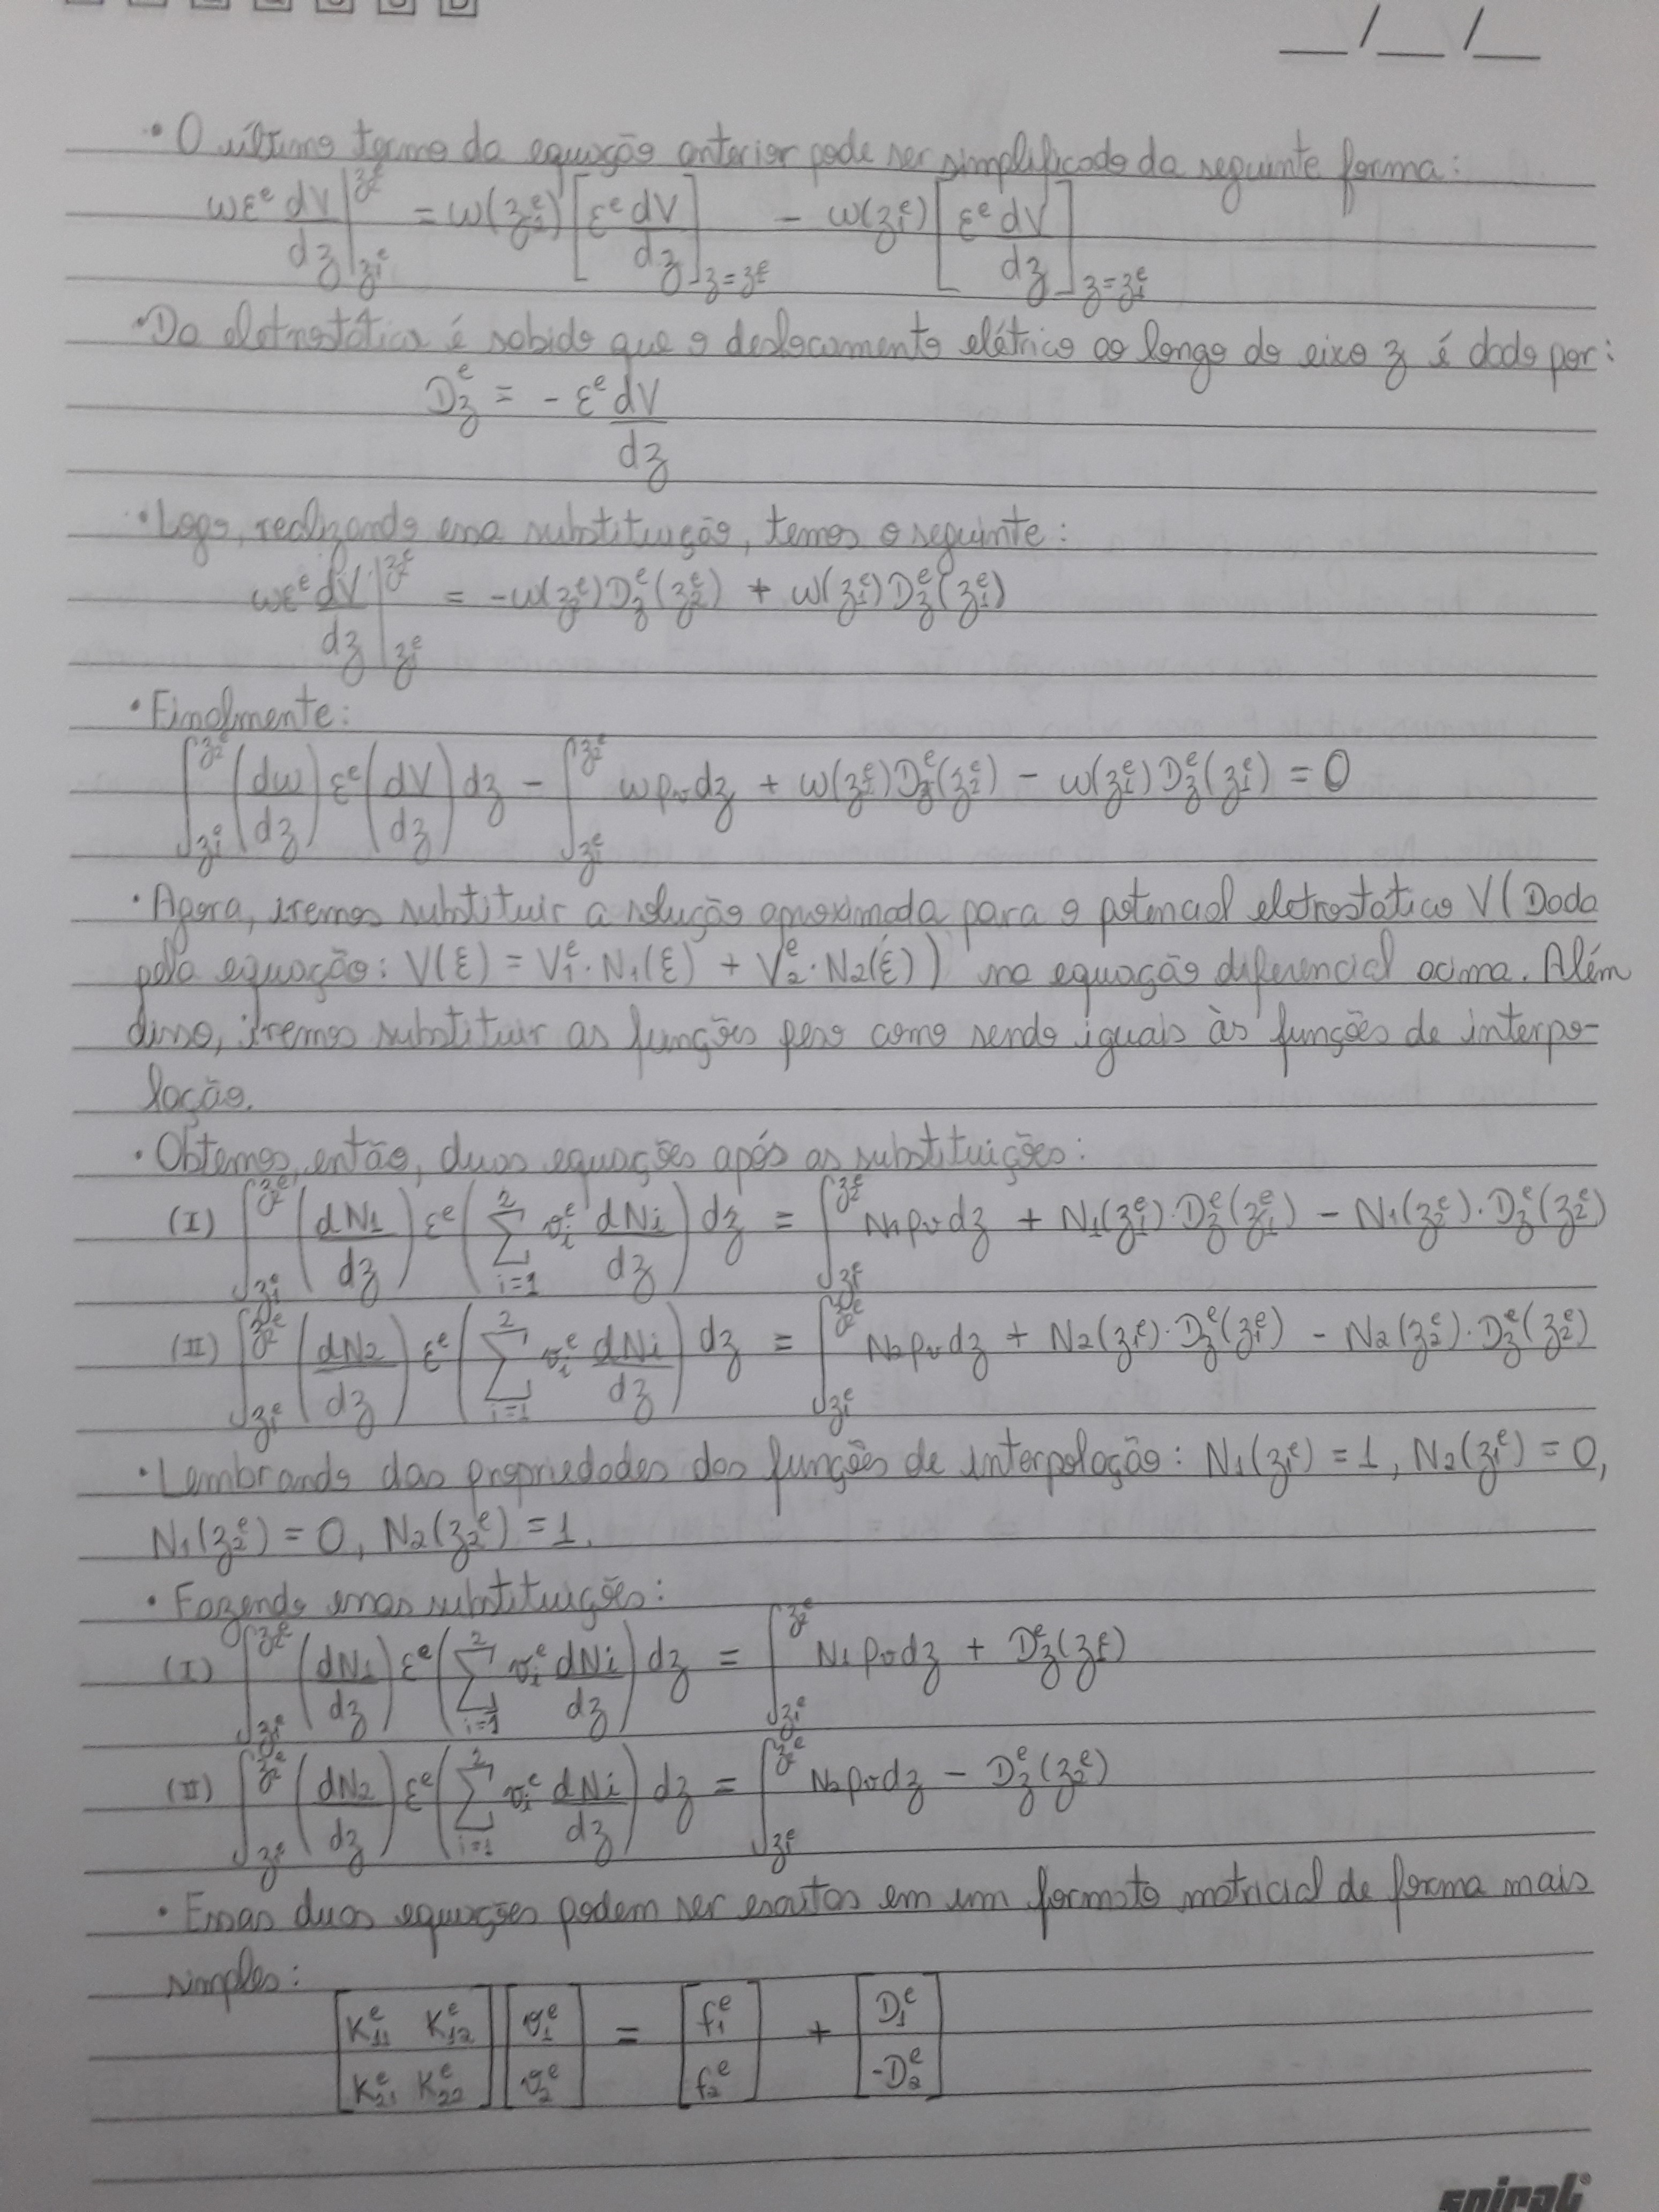 __/__/__
• O último termo da equação anterior pode ser simplificado da seguinte forma:
wεᵉ dV/dz |_{z₁ᵉ}^{z₂ᵉ} = w(z₂ᵉ)[εᵉ dV/dz]_{z=z₂ᵉ} - w(z₁ᵉ)[εᵉ dV/dz]_{z=z₁ᵉ}
• Da eletrostática é sabido que o deslocamento elétrico ao longo do eixo z é dado por:
D_zᵉ = - εᵉ dV/dz
• Logo, realizando essa substituição, temos o seguinte:
wεᵉ dV/dz |_{z₁ᵉ}^{z₂ᵉ} = -w(z₂ᵉ)D_zᵉ(z₂ᵉ) + w(z₁ᵉ)D_zᵉ(z₁ᵉ)
• Finalmente:
∫_{z₁ᵉ}^{z₂ᵉ} (dw/dz) εᵉ (dV/dz) dz - ∫_{z₁ᵉ}^{z₂ᵉ} wρᵥdz + w(z₂ᵉ)D_zᵉ(z₂ᵉ) - w(z₁ᵉ)D_zᵉ(z₁ᵉ) = 0
• Agora, iremos substituir a solução aproximada para o potencial eletrostático V (Dada
pela equação: V(ξ) = V₁ᵉ·N₁(ξ) + V₂ᵉ·N₂(ξ)) na equação diferencial acima. Além
disso, iremos substituir as funções peso como sendo iguais às funções de interpo-
lação.
• Obtemos, então, duas equações após as substituições:
(I) ∫_{z₁ᵉ}^{z₂ᵉ} (dN₁/dz) εᵉ (∑_{i=1}^{2} vᵢᵉ dNi/dz) dz = ∫_{z₁ᵉ}^{z₂ᵉ} N₁ρᵥdz + N₁(z₁ᵉ)·D_zᵉ(z₁ᵉ) - N₁(z₂ᵉ)·D_zᵉ(z₂ᵉ)
(II) ∫_{z₁ᵉ}^{z₂ᵉ} (dN₂/dz) εᵉ (∑_{i=1}^{2} vᵢᵉ dNi/dz) dz = ∫_{z₁ᵉ}^{z₂ᵉ} N₂ρᵥdz + N₂(z₁ᵉ)·D_zᵉ(z₁ᵉ) - N₂(z₂ᵉ)·D_zᵉ(z₂ᵉ)
• Lembrando das propriedades das funções de interpolação: N₁(z₁ᵉ) = 1, N₂(z₁ᵉ) = 0,
N₁(z₂ᵉ) = 0, N₂(z₂ᵉ) = 1.
• Fazendo essas substituições:
(I) ∫_{z₁ᵉ}^{z₂ᵉ} (dN₁/dz) εᵉ (∑_{i=1}^{2} vᵢᵉ dNi/dz) dz = ∫_{z₁ᵉ}^{z₂ᵉ} N₁ρᵥdz + D_zᵉ(z₁ᵉ)
(II) ∫_{z₁ᵉ}^{z₂ᵉ} (dN₂/dz) εᵉ (∑_{i=1}^{2} vᵢᵉ dNi/dz) dz = ∫_{z₁ᵉ}^{z₂ᵉ} N₂ρᵥdz - D_zᵉ(z₂ᵉ)
• Essas duas equações podem ser escritas em um formato matricial de forma mais
simples:
[K₁₁ᵉ K₁₂ᵉ] [v₁ᵉ] = [f₁ᵉ] + [D₁ᵉ]
[K₂₁ᵉ K₂₂ᵉ] [v₂ᵉ] [f₂ᵉ] [-D₂ᵉ]
spiral®